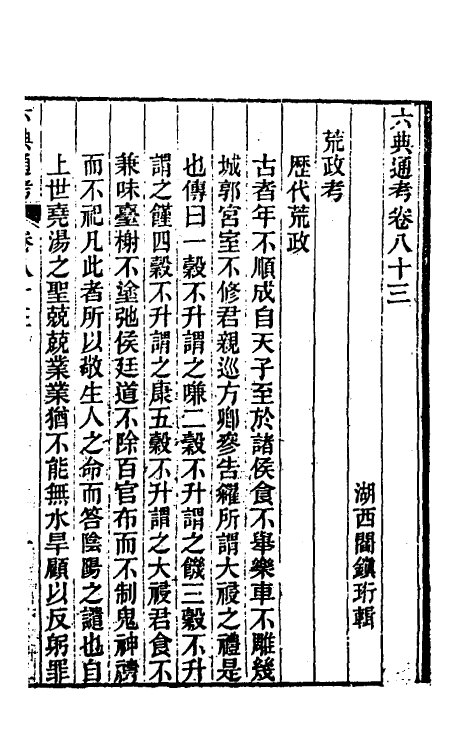 六典通考卷八十三
湖西閻鎮珩輯
荒政考
歷代荒政
古者年不順成自天子至於諸侯食不舉樂車不雕幾
城郭宮室不修君親巡方卿參告糴所謂大祲之禮是
也傳曰一穀不升謂之嗛二穀不升謂之饑三穀不升
謂之饉四穀不升謂之康五穀不升謂之大祲君食不
兼味臺榭不塗弛侯廷道不除百官布而不制鬼神禱
而不祀凡此者所以敬生人之命而答陰陽之譴也自
上世堯湯之聖兢兢業業猶不能無水旱顧以反躬罪
六典通考 卷八十三